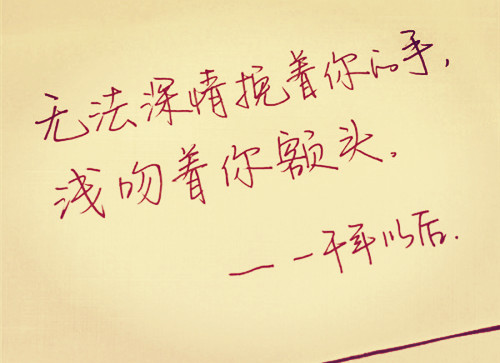 无法深情挽着你的手，
浅吻着你额头。
——一千年以后.